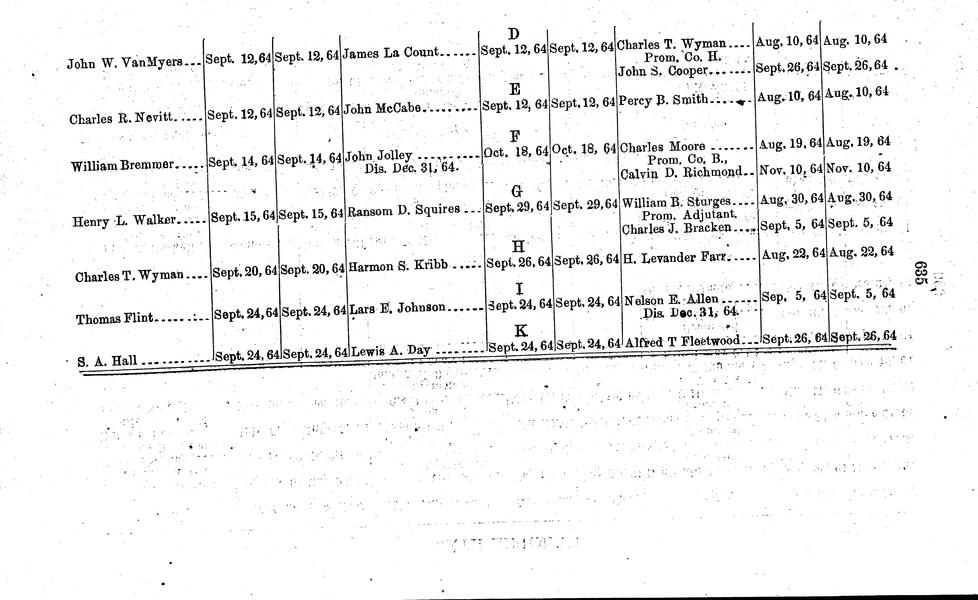 D
John W. VanMyers... Sept. 12, 64 Sept. 12, 64 James La Count...... Sept. 12, 64 Sept. 12, 64 Charles T. Wyman.... Aug. 10, 64 Aug. 10, 64
Prom. Co. H.
John S. Cooper....... Sept. 26, 64 Sept. 26, 64
E
Charles R. Nevitt..... Sept. 12, 64 Sept. 12, 64 John McCabe........ Sept. 12, 64 Sept. 12, 64 Percy B. Smith..... Aug. 10, 64 Aug. 10, 64
F
William Bremmer..... Sept. 14, 64 Sept. 14, 64 John Jolley ......... Oct. 18, 64 Oct. 18, 64 Charles Moore ....... Aug. 19, 64 Aug. 19, 64
Dis. Dec. 31, 64. Prom. Co. B.,
Calvin D. Richmond.. Nov. 10, 64 Nov. 10, 64
G
Henry L. Walker..... Sept. 15, 64 Sept. 15, 64 Ransom D. Squires ... Sept. 29, 64 Sept. 29, 64 William B. Sturges.... Aug. 30, 64 Aug. 30, 64
Prom. Adjutant.
Charles J. Bracken.... Sept. 5, 64 Sept. 5, 64
H
Charles T. Wyman .... Sept. 20, 64 Sept. 20, 64 Harmon S. Kribb ..... Sept. 26, 64 Sept. 26, 64 H. Levander Farr..... Aug. 22, 64 Aug. 22, 64
635
I
Thomas Flint........ Sept. 24, 64 Sept. 24, 64 Lars E. Johnson...... Sept. 24, 64 Sept. 24, 64 Nelson E. Allen ...... Sep. 5, 64 Sept. 5, 64
Dis. Dec. 31, 64.
K
S. A. Hall .......... Sept. 24, 64 Sept. 24, 64 Lewis A. Day ........ Sept. 24, 64 Sept. 24, 64 Alfred T Fleetwood... Sept. 26, 64 Sept. 26, 64